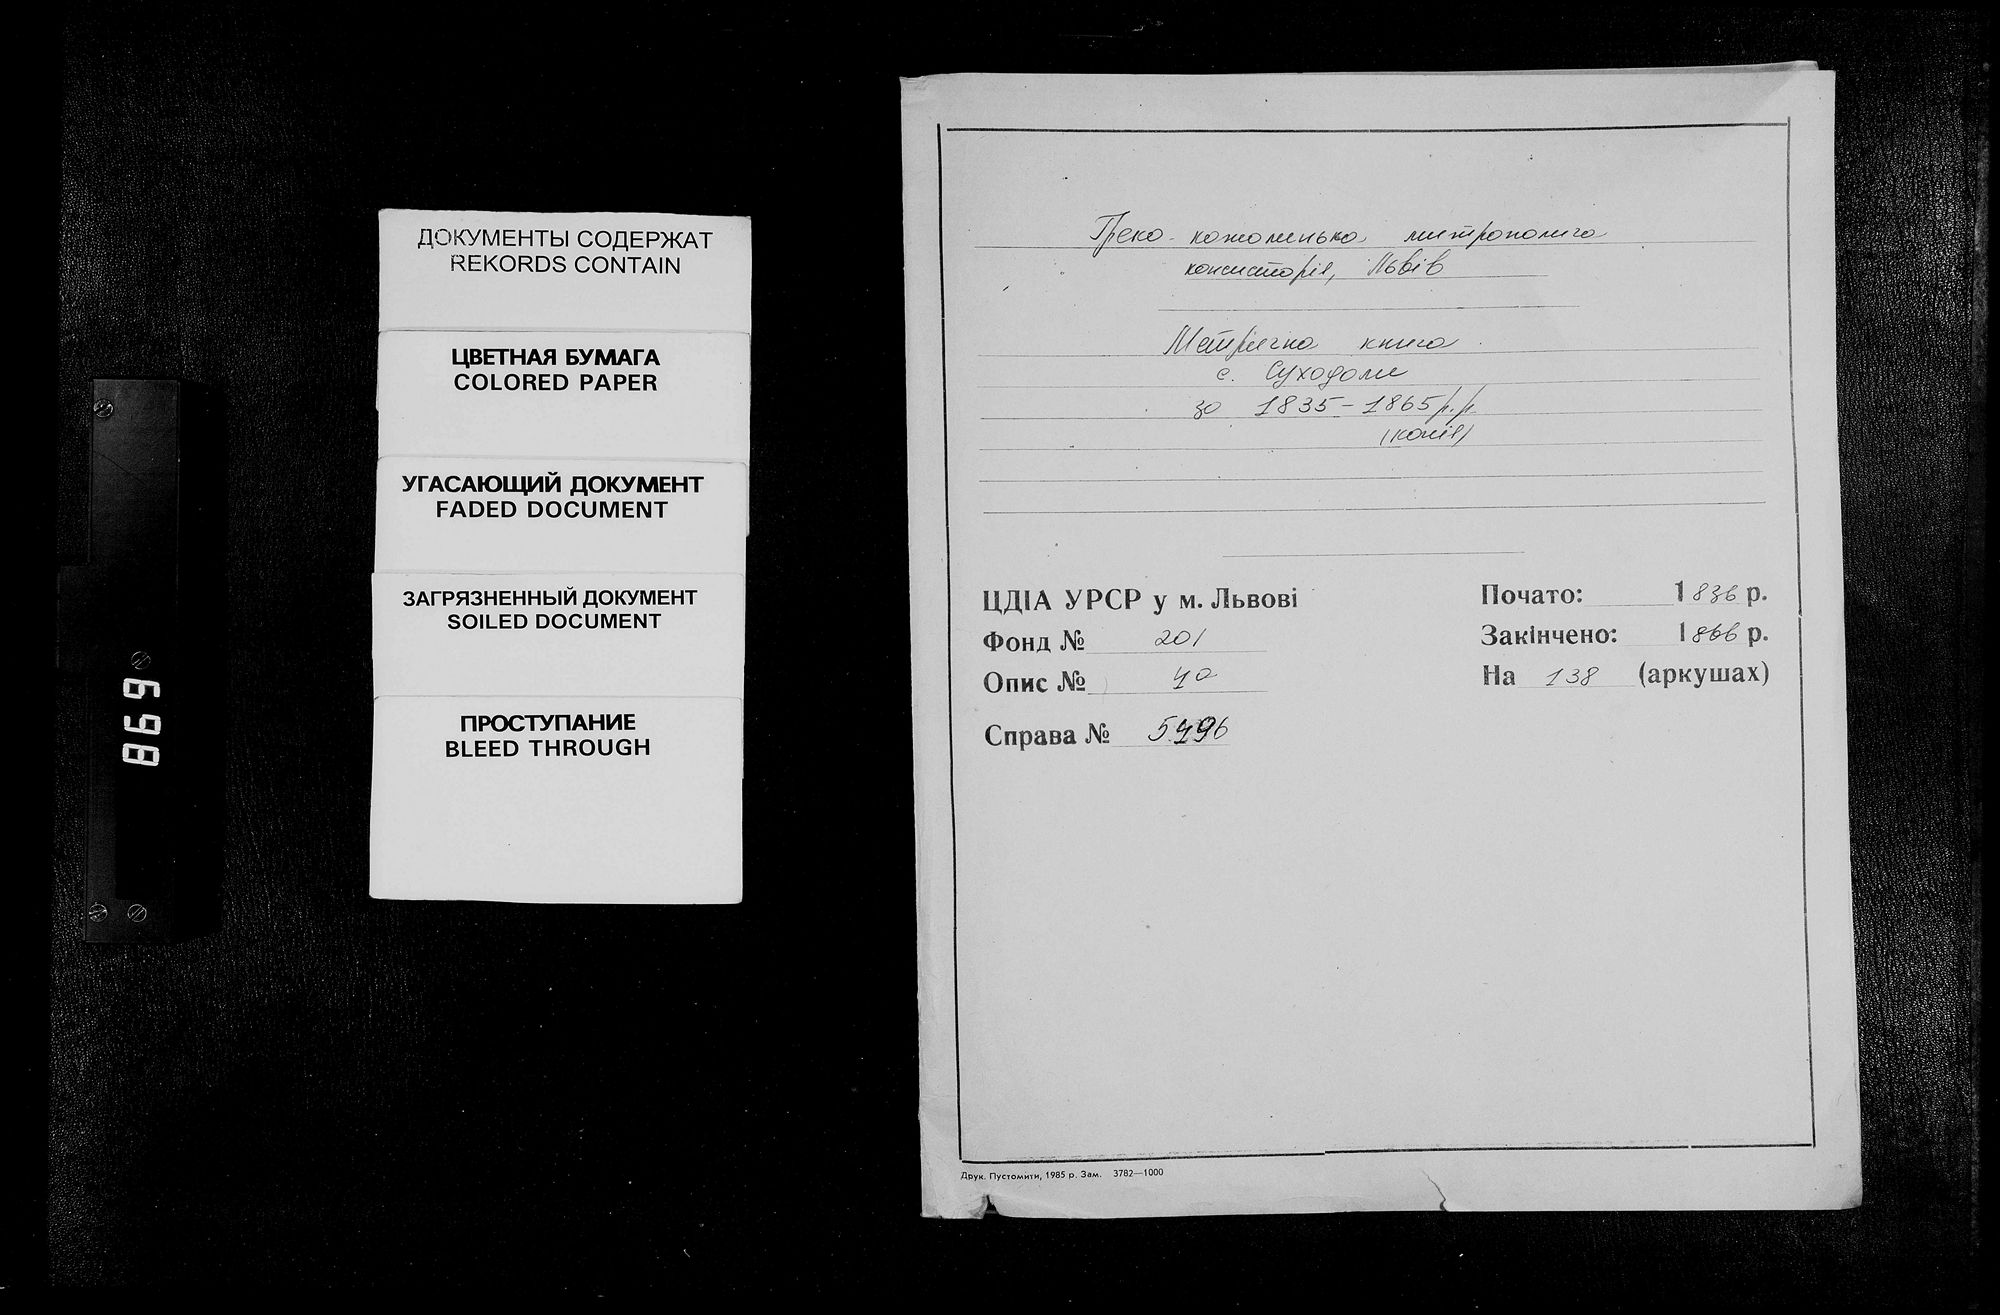 ДОКУМЕНТЫ СОДЕРЖАТ
REKORDS CONTAIN
ЦВЕТНАЯ БУМАГА
COLORED PAPER
УГАСАЮЩИЙ ДОКУМЕНТ
FADED DOCUMENT
ЗАГРЯЗНЕННЫЙ ДОКУМЕНТ
SOILED DOCUMENT
ПРОСТУПАНИЕ
BLEED THROUGH
869
Греко-католицька митрополича
консисторія, Львів
Метрична книга
с. Суходоли
за 1835-1865 р.р.
(копія)
ЦДІА УРСР у м. Львові
Фонд № 201
Опис № 4а
Справа № 5496
Почато: 1836 р.
Закінчено: 1866 р.
На 138 (аркушах)
Друк. Пустомити, 1985 р. Зам. 3782—1000